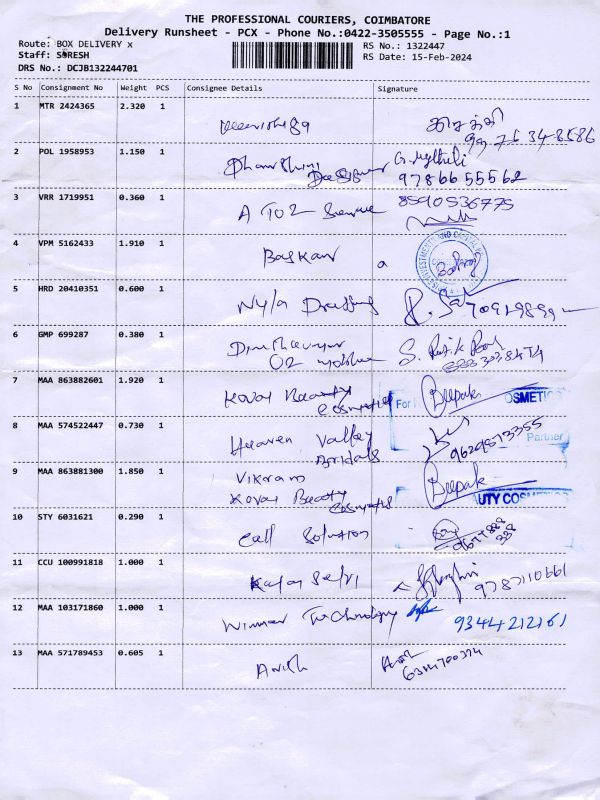 THE PROFESSIONAL COURIERS, COIMBATORE
Delivery Runsheet - PCX - Phone No.:0422-3505555 - Page No.:1
Route: BOX DELIVERY x
Staff: SURESH
DRS No.: DCJB132244701
RS No.: 1322447
RS Date: 15-Feb-2024
S No Consignment No Weight PCS Consignee Details Signature
1 MTR 2424365 2.320 1
2 POL 1958953 1.150 1 G. Mythili
9786655562
3 VRR 1719951 0.360 1 A TO Z Service 8590536775
4 VPM 5162433 1.910 1 Baskar
5 HRD 20410351 0.600 1 Nyla
6 GMP 699287 0.380 1
7 MAA 863882601 1.920 1 Kovai Beauty Cosmetics For Deepak COSMETIC
8 MAA 574522447 0.730 1 Heaven Valley Bridals 9629573355 Partner
9 MAA 863881300 1.850 1 Vikram
Kovai Beauty Cosmetics Deepak AUTY COSMETICS
10 STY 6031621 0.290 1 Call Solution
11 CCU 100991818 1.000 1 Kalai Selvi 9787110661
12 MAA 103171860 1.000 1 Winner Technology 9344212161
13 MAA 571789453 0.605 1